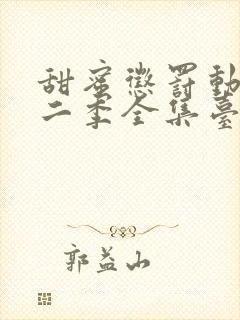 甜蜜懲罰動
二季全集臺
郭益山